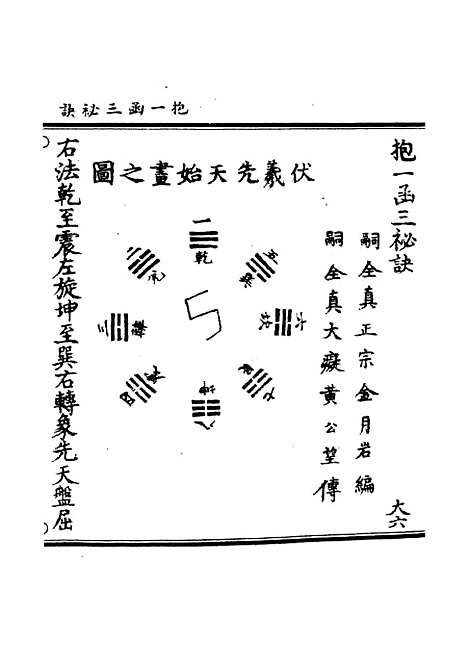 抱一函三祕訣
抱一函三祕訣
大六
嗣全真正宗金月岩編
嗣全真大癡黃公望傳
伏羲先天始畫之圖
一乾
兌
三離
四震
五巽
六坎
七艮
八坤
右法乾至震左旋坤至巽右轉象先天盤屈